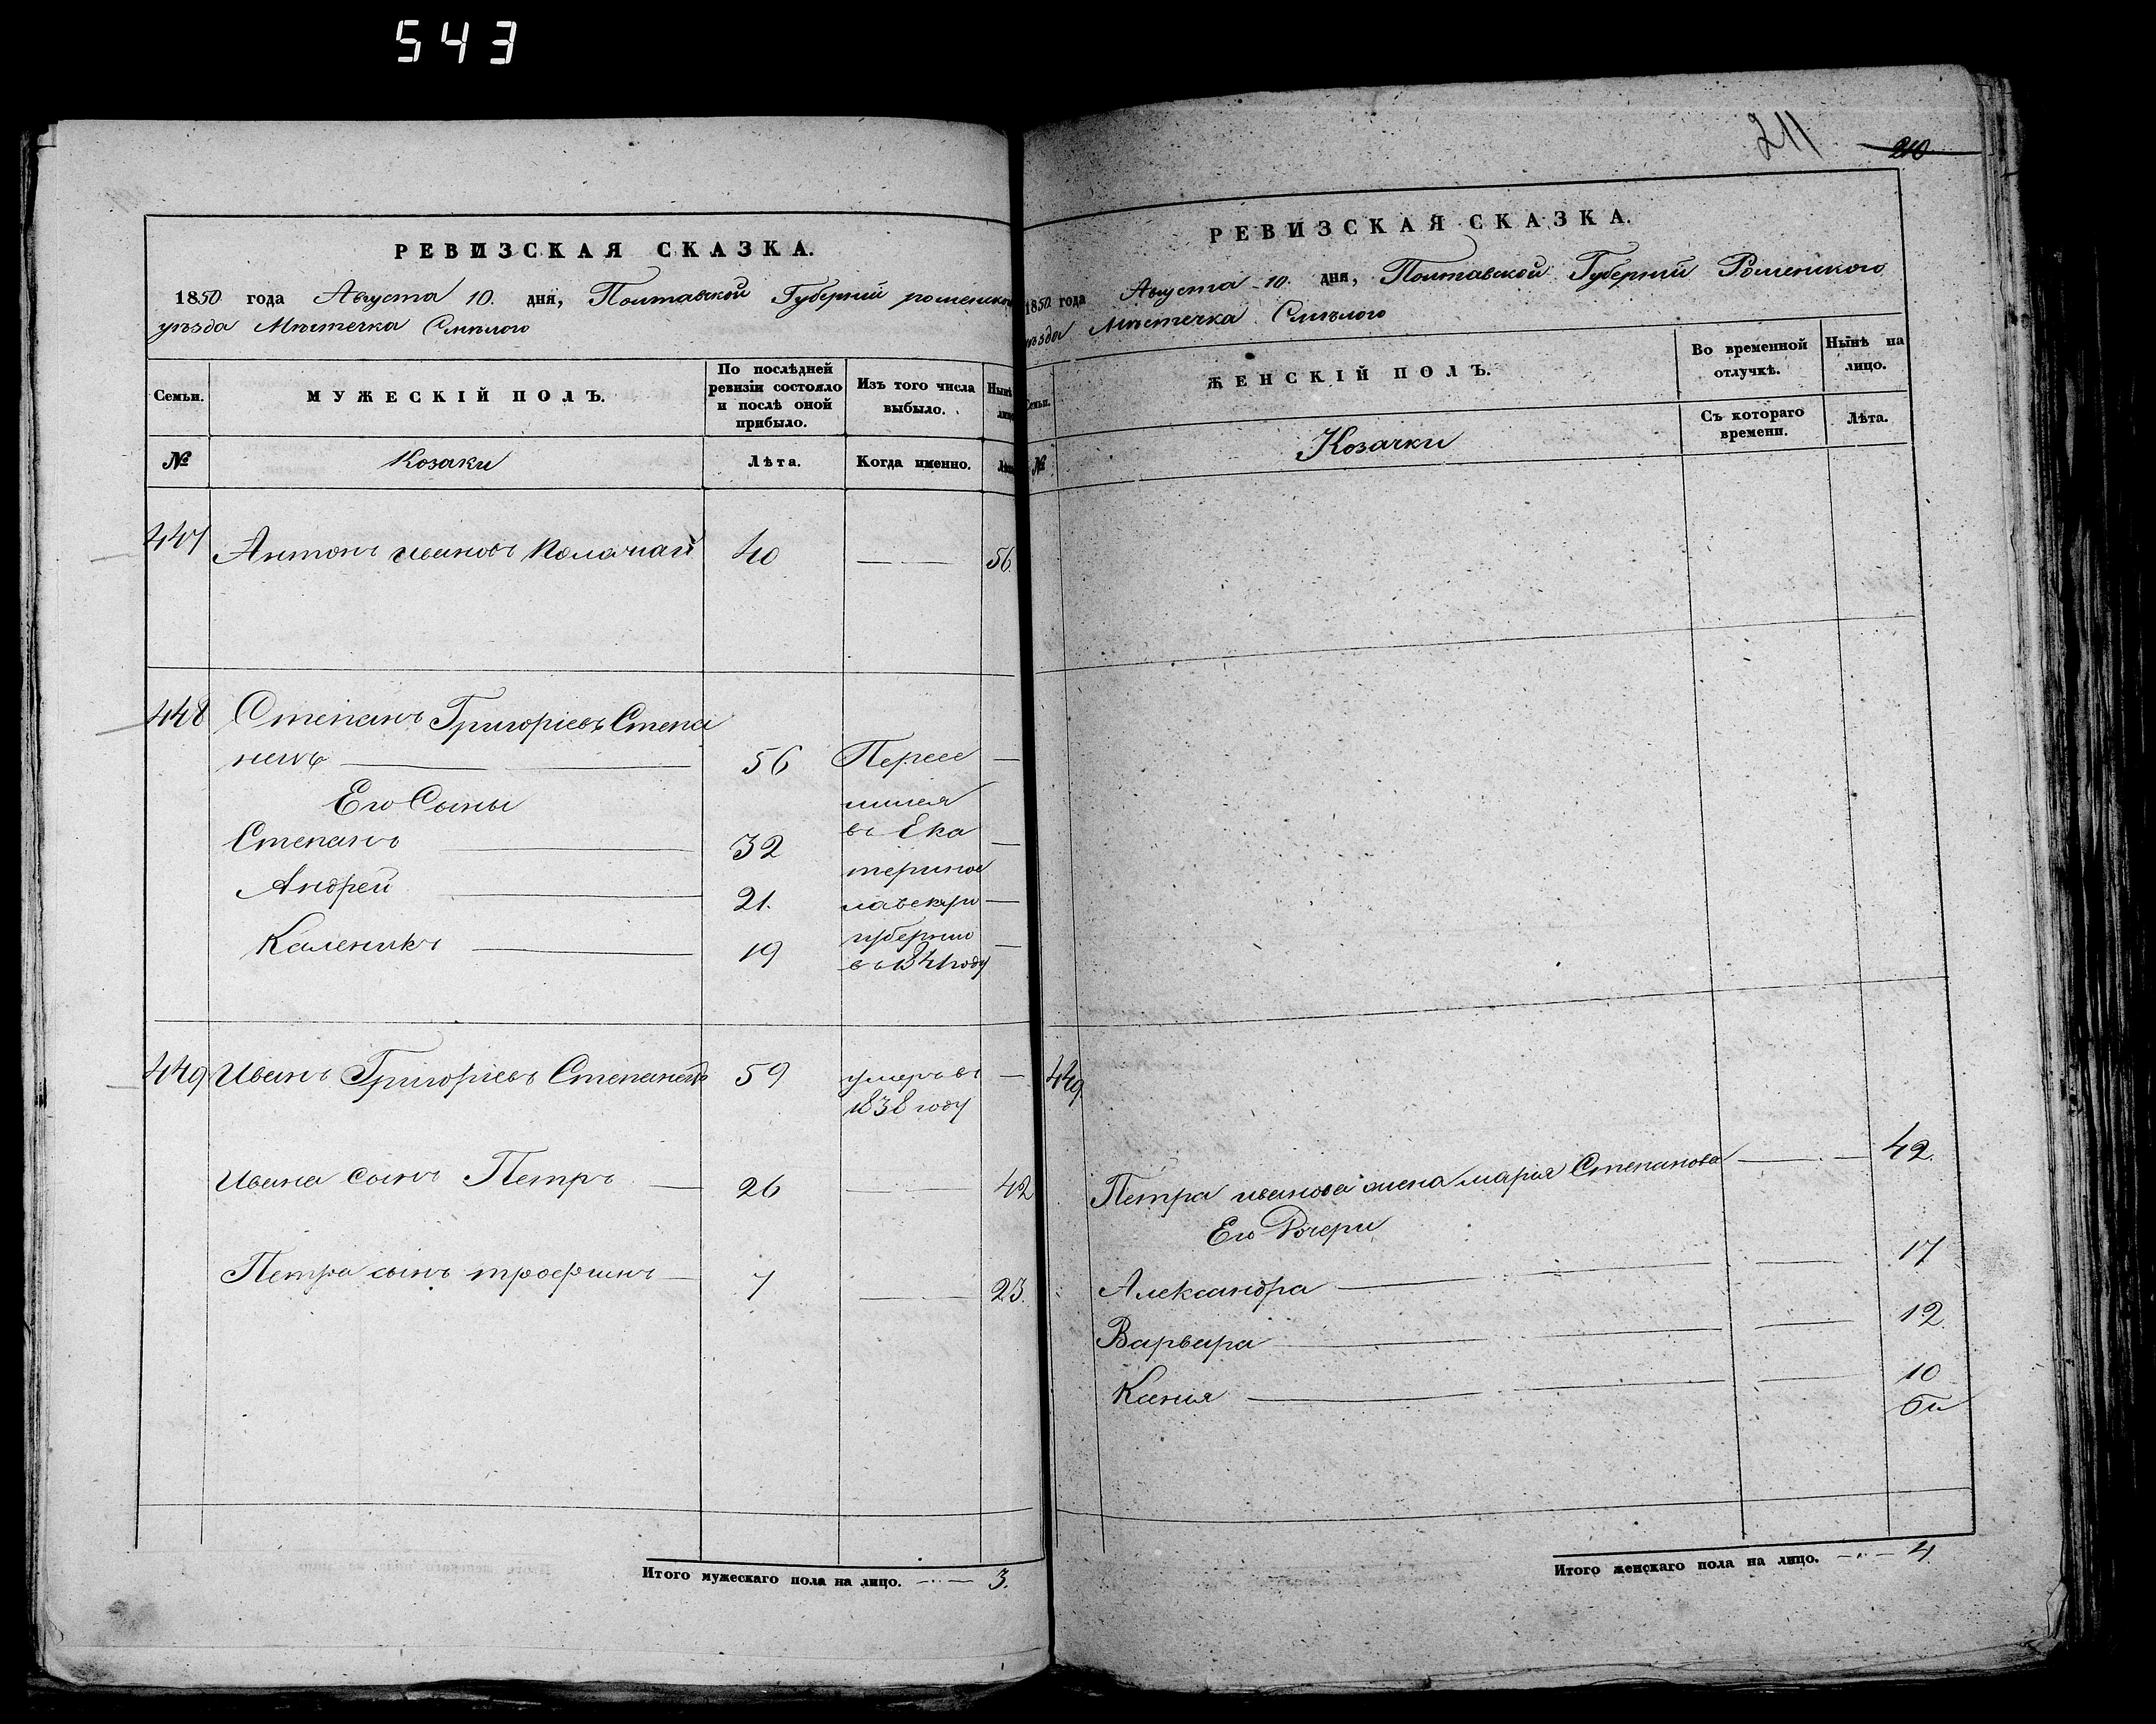 543
РЕВИЗСКАЯ СКАЗКА.
1850 года Августа 10. дня, Полтавской Губерніи роменского
уѣзда Мѣстечка Смѣлого
Семьи.
МУЖЕСКІЙ ПОЛЪ.
По послѣдней
ревизіи состояло
и послѣ оной
прибыло.
Изъ того числа
выбыло.
Нынѣ
лицо
№
Козаки
Лѣта.
Когда именно.
Лѣта
447 Антонъ ивановъ 40 — 56.
448 Степанъ Григоріевъ Степа
ненъ 56 Пересе —
Его Сыны лился
Степанъ 32 въ Ека —
Андрей 21. теринос
лавскую —
Каленикъ 19 губернию —
въ 1841 году
449 Иванъ Григоріевъ Степаненъ 59 умеръ въ —
1838 году
Ивана сынъ Петръ — 26 — 42
Петра сынъ трофимъ — 7 — 23.
Итого мужескаго пола на лицо. — 3.
211 210
РЕВИЗСКАЯ СКАЗКА.
1850 года Августа 10. дня, Полтавской Губерніи Роменского
уѣзда Мѣстечка Смѣлого
Семьи.
ЖЕНСКІЙ ПОЛЪ.
Во временной
отлучкѣ.
Нынѣ на
лицо.
Съ котораго
времени.
Лѣта.
№
Козачки
449
Петра иванова жена мария Степанова — 42.
Его Дочери
Александра — 17
Варвара — 12
Ксения — 10
Итого женскаго пола на лицо. — 4.